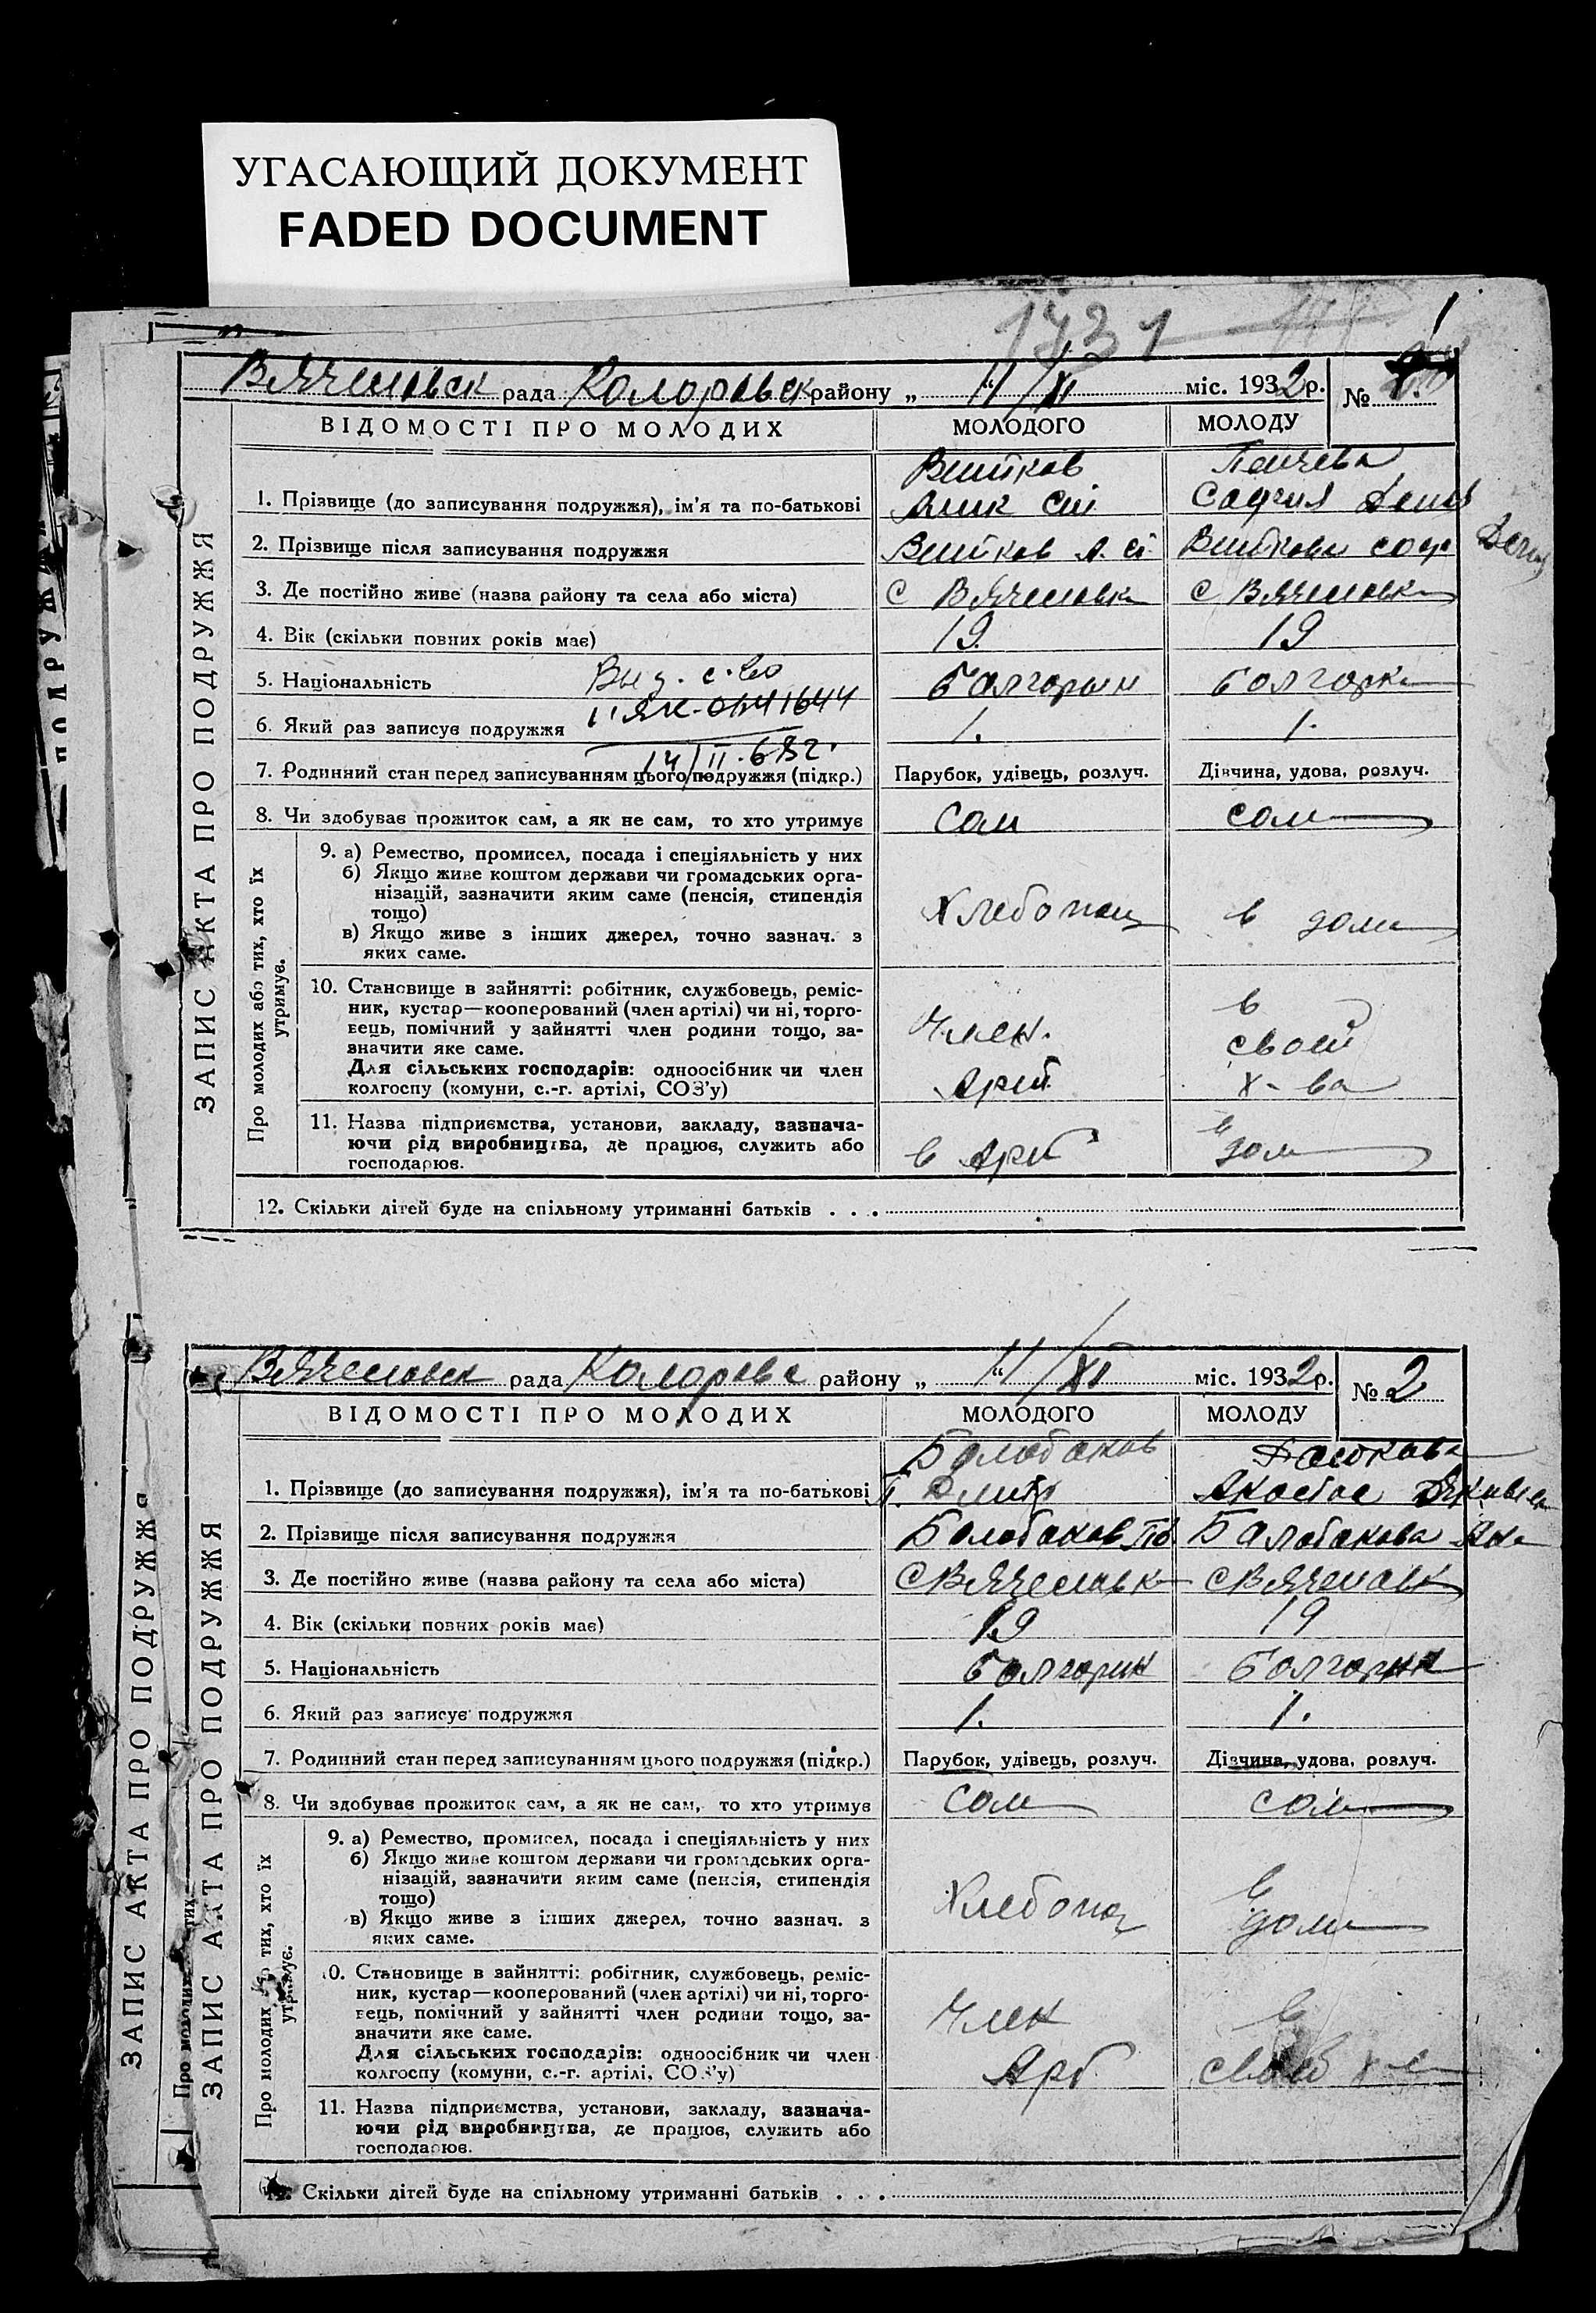 УГАСАЮЩИЙ ДОКУМЕНТ
FADED DOCUMENT
1731
1
Вячеловск рада Коларовск району „ 11/XI “ міс. 1932 р. №
ВІДОМОСТІ ПРО МОЛОДИХ МОЛОДОГО МОЛОДУ
ЗАПИС АКТА ПРО ПОДРУЖЖЯ
1. Прізвище (до записування подружжя), ім'я та по-батькові
София
2. Прізвище після записування подружжя
3. Де постійно живе (назва району та села або міста) С Вячеловка С Вячеловка
4. Вік (скільки повних років має) 19. 19
5. Національність Болгарин Болгарка
Выд. с-во
6. Який раз записує подружжя 1. 1.
7. Родинний стан перед записуванням цього подружжя (підкр.) Парубок, удівець, розлуч. Дівчина, удова, розлуч.
8. Чи здобуває прожиток сам, а як не сам, то хто утримує Сам сам
Про молодих або тих, хто їх утримує.
9. а) Ремество, промисел, посада і спеціяльність у них
б) Якщо живе коштом держави чи громадських орга-
нізацій, зазначити яким саме (пенсія, стипендія
тощо)
в) Якщо живе з інших джерел, точно зазнач. з
яких саме.
Хлебопащ в доме
10. Становище в зайнятті: робітник, службовець, реміс-
ник, кустар—кооперований (член артілі) чи ні, торго-
вець, помічний у зайнятті член родини тощо, за-
значити яке саме.
Для сільських господарів: одноосібник чи член
колгоспу (комуни, с.-г. артілі, СОЗ'у)
Член. Арт. в своем х-ва
11. Назва підприємства, установи, закладу, зазнача-
ючи рід виробництва, де працює, служить або
господарює.
в Арт в дом
12. Скільки дітей буде на спільному утриманні батьків . . .
Вячеловск рада Коларовс району „ 11/XI “ міс. 1932 р. № 2
ВІДОМОСТІ ПРО МОЛОДИХ МОЛОДОГО МОЛОДУ
ЗАПИС АКТА ПРО ПОДРУЖЖЯ
ЗАПИС АКТА ПРО ПОДРУЖЖЯ
1. Прізвище (до записування подружжя), ім'я та по-батькові
Балабанов
2. Прізвище після записування подружжя Балабанов Балабанова
3. Де постійно живе (назва району та села або міста) С Вячеловк С Вячеловк
4. Вік (скільки повних років має) 19 19
5. Національність Болгарин Болгарик
6. Який раз записує подружжя 1. 1.
7. Родинний стан перед записуванням цього подружжя (підкр.) Парубок, удівець, розлуч. Дівчина, удова, розлуч.
8. Чи здобуває прожиток сам, а як не сам, то хто утримує Сам сам
Про молодих або тих, хто їх утримує.
9. а) Ремество, промисел, посада і спеціяльність у них
б) Якщо живе коштом держави чи громадських орга-
нізацій, зазначити яким саме (пенсія, стипендія
тощо)
в) Якщо живе з інших джерел, точно зазнач. з
яких саме.
Хлебопащ в доме
10. Становище в зайнятті: робітник, службовець, реміс-
ник, кустар—кооперований (член артілі) чи ні, торго-
вець, помічний у зайнятті член родини тощо, за-
значити яке саме.
Для сільських господарів: одноосібник чи член
колгоспу (комуни, с.-г. артілі, СОЗ'у)
Член Арт в
11. Назва підприємства, установи, закладу, зазнача-
ючи рід виробництва, де працює, служить або
господарює.
Скільки дітей буде на спільному утриманні батьків . . .